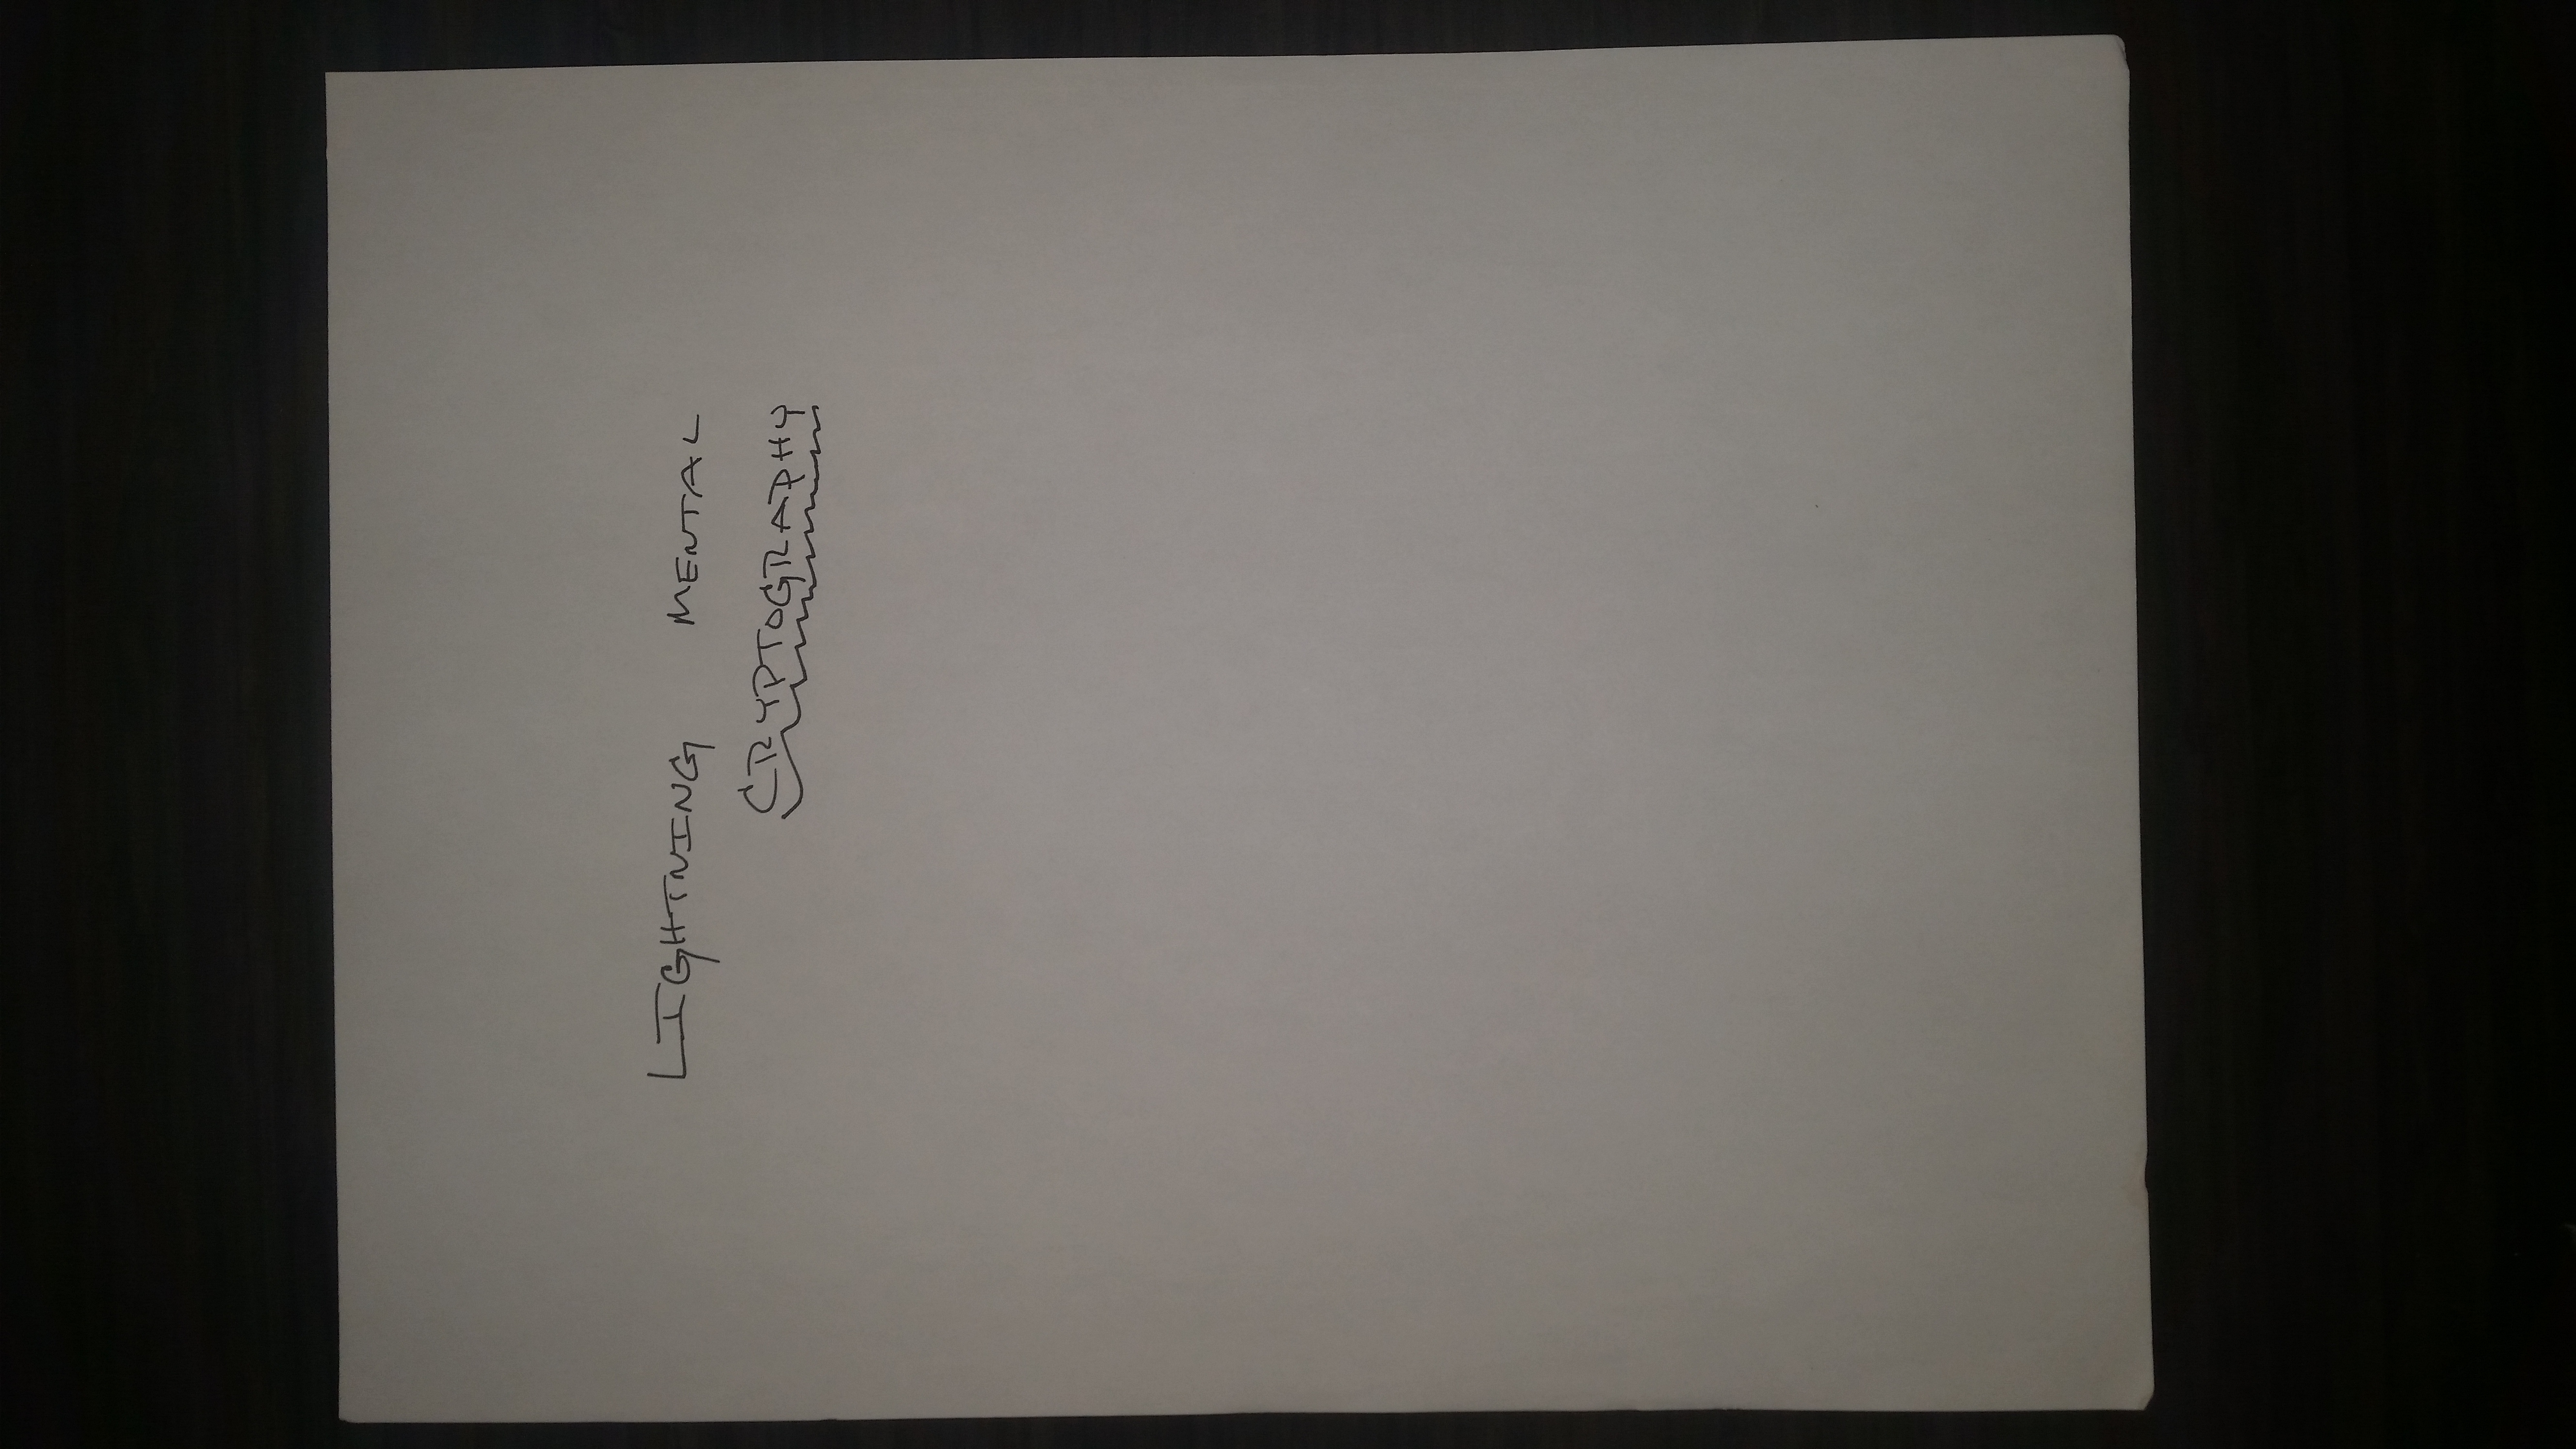 LIGHTNING MENTAL
CRYPTOGRAPHY